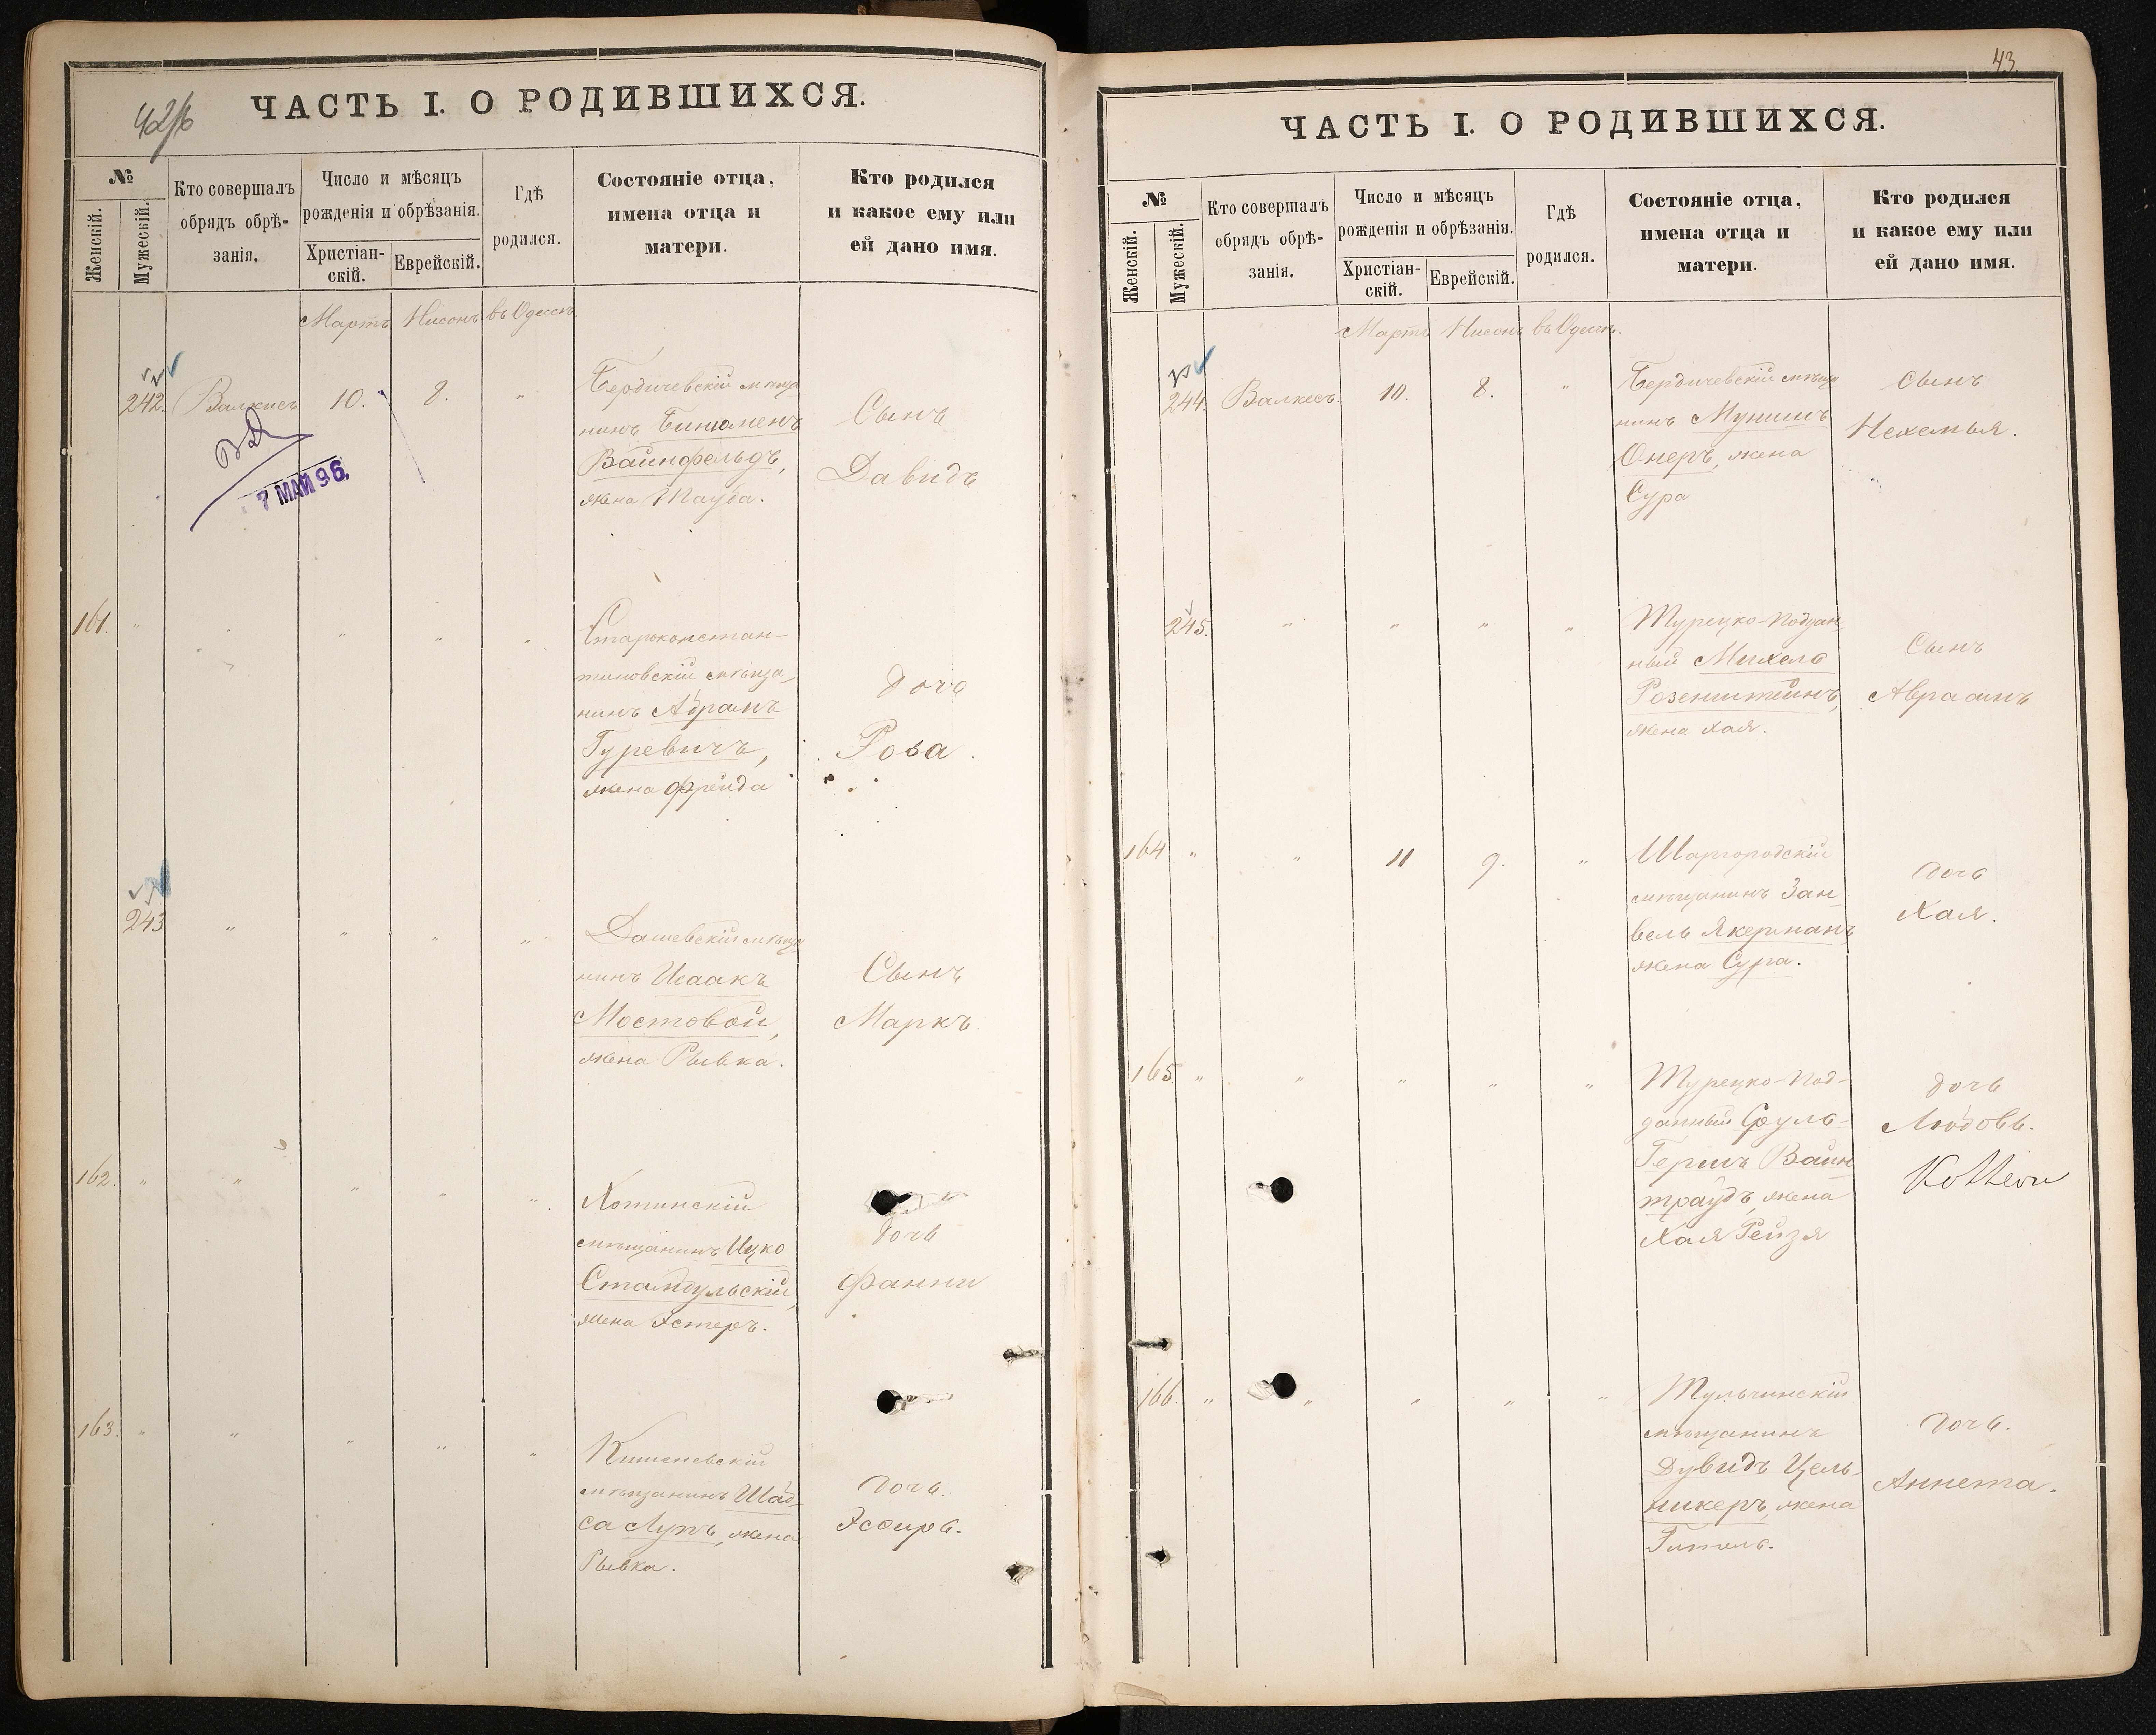 ЧАСТЬ I. О РОДИВШИХСЯ.
№
Женскій.
Мужескій.
Кто совершалъ
обрядъ обрѣ-
занія.
Число и мѣсяцъ
рожденія и обрѣзанія.
Христіан-
скій.
Еврейскій.
Гдѣ
родился.
Состояніе отца,
имена отца и
матери.
Кто родился
и какое ему или
ей дано имя.
Мартъ Нисонъ въ Одессѣ
242. Валкесъ 10. 8. "
Бердичевскій мѣща
нинъ Бинюменъ
Вайнфельдъ,
жена Тауба.
Сынъ
Давидъ
7 МАЙ 96.
161. " " " " "
Староконстан-
тиновскій мѣща
нинъ Абрамъ
Гуревичъ,
жена Фрейда
дочь
Роза.
243 " " " "
Дашевскій мѣща
нинъ Исаакъ
Мостовой,
жена Рывка.
Сынъ
Маркъ
162. " " " " "
Хотинскій
мѣщанинъ Ицко
Стамбульскій,
жена Эстеръ.
дочь
Фанни
163. " " " " "
Кишеневскій
мѣщанинъ Шаб-
са Лупъ, жена
Рывка.
Дочь.
Эсѳирь.
43.
ЧАСТЬ I. О РОДИВШИХСЯ.
№
Женскій.
Мужескій.
Кто совершалъ
обрядъ обрѣ-
занія.
Число и мѣсяцъ
рожденія и обрѣзанія.
Христіан-
скій.
Еврейскій.
Гдѣ
родился.
Состояніе отца,
имена отца и
матери.
Кто родился
и какое ему или
ей дано имя.
Мартъ Нисонъ въ Одессѣ.
244. Валкесъ. 10. 8. "
Бердичевскій мѣща
нинъ Мунишъ
Онеръ, жена
Сура
Сынъ
Нехемья.
245. " " " "
Турецко-поддан
ный Михель
Розенштейнъ,
жена Хая.
Сынъ
Авраамъ
164 " " 11 9. "
Шаргородскій
мѣщанинъ Зан
вель Якерманъ
жена Сура.
Дочь
Хая.
165. " " " " "
Турецко-под-
данный Сруль-
Гершъ Вайн
траубъ, жена
Хая Рейзя
дочь
Любовь.
166. " " " " "
Тульчинскій
мѣщанинъ
Дувидъ Цель-
никеръ, жена
Гитель.
Дочь.
Аннета.